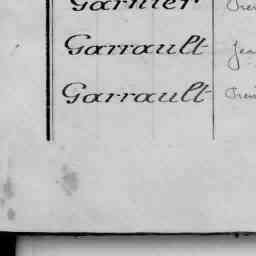 Garnier
Garrault
Garrault